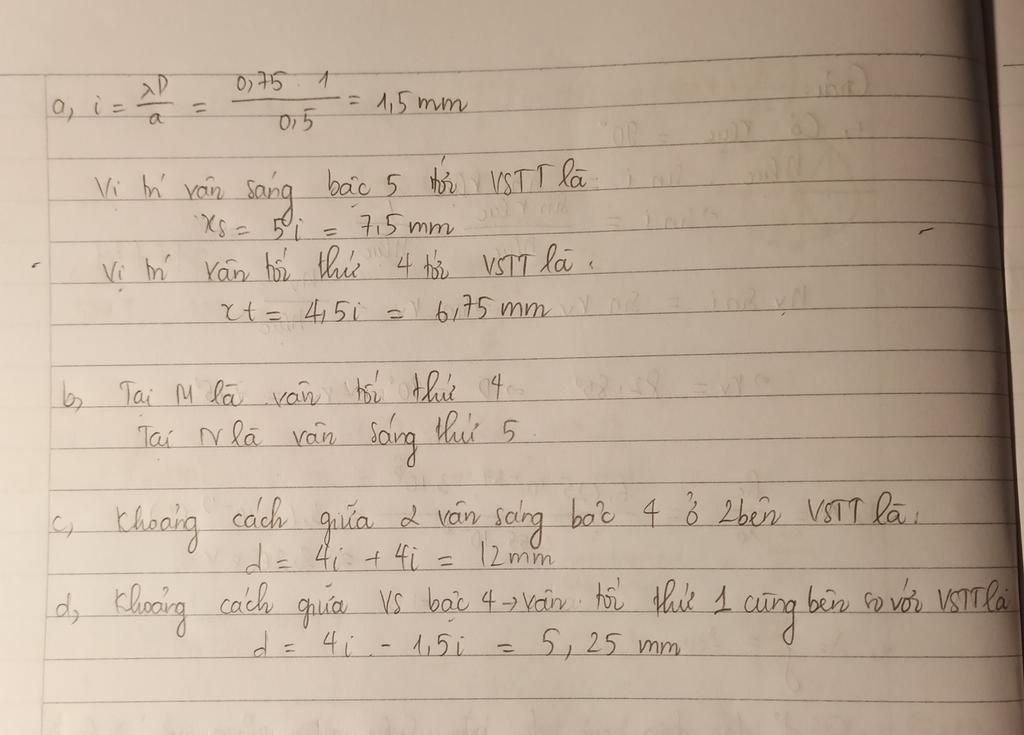 a, i = λD/a = 0,75 . 1 / 0,5 = 1,5 mm
Vị trí vân sáng bậc 5 tới VSTT là
xs = 5i = 7,5 mm
Vị trí vân tối thứ 4 tới VSTT là.
xt = 4,5i = 6,75 mm
b, Tại M là vân tối thứ 4
Tại N là vân sáng thứ 5
c, Khoảng cách giữa 2 vân sáng bậc 4 ở 2 bên VSTT là.
d = 4i + 4i = 12 mm
d, Khoảng cách giữa VS bậc 4 → vân tối thứ 1 cùng bên so với VSTT là
d = 4i - 1,5i = 5,25 mm